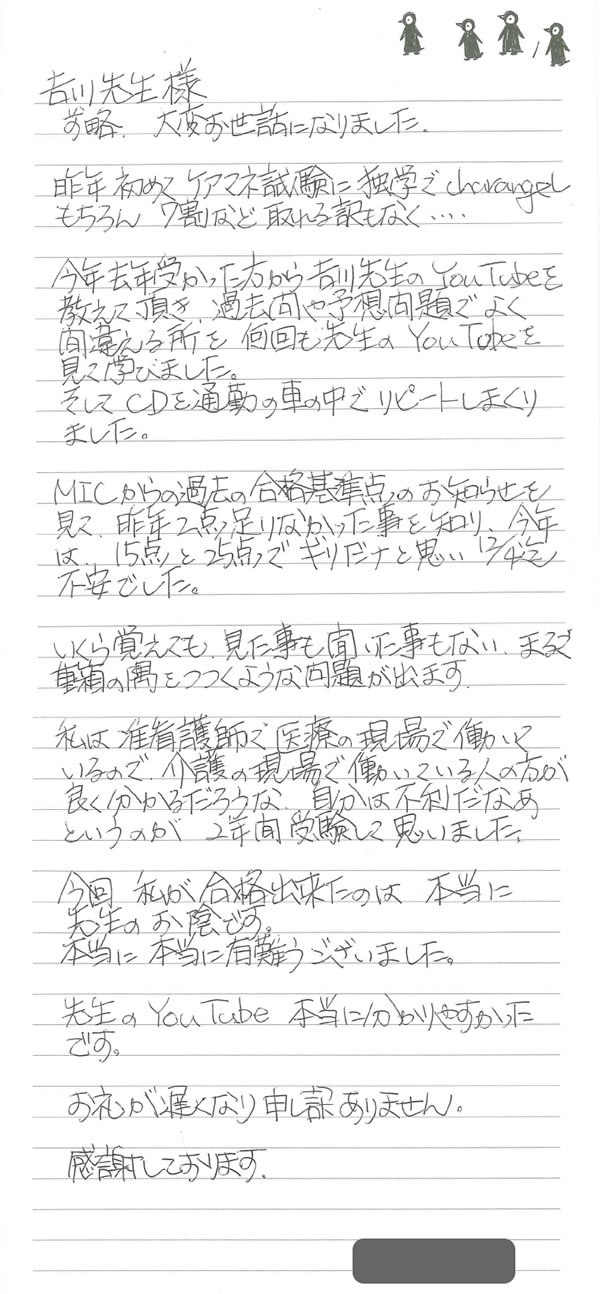 吉川先生様
前略. 大変お世話になりました.
昨年初めてケアマネ試験に独学で charangel
もちろん 7割など取れる訳もなく‥‥
今年去年受かった方から吉川先生のYouTubeを
教えて頂き、過去問や予想問題でよく
間違える所を何回も先生のYouTubeを
見て学びました。
そしてCDを通勤の車の中でリピートしまくり
ました。
MICからの過去の合格基準点のお知らせを
見て、昨年2点足りなかった事を知り、今年
は、15点と25点でギリだナと思い12/4迄
不安でした。
いくら覚えても、見た事も聞いた事もない、まるで
重箱の隅をつつくような問題が出ます.
私は准看護師で医療の現場で働いて
いるので、介護の現場で働いている人の方が
良く分かるだろうな、自分は不利だなあ
というのが 2年間受験して思いました.
今回 私が合格出来たのは 本当に
先生のお陰です。
本当に本当に有難うございました。
先生のYouTube 本当に分かりやすかった
です。
お礼が遅くなり申し訳ありません。
感謝しております.